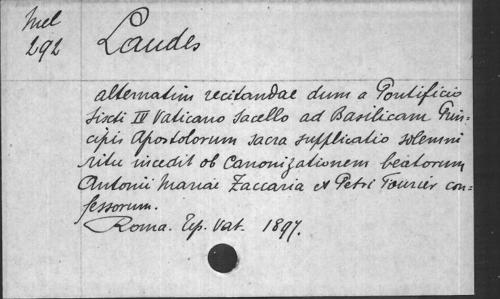 Mel
292
Laudes
alternatim recitandae dum a Pontificio
Sixti IV Vaticano sacello ad Basilicam Prin=
cipis Apostolorum sacra supplicatio solemni
ritu incedit ob Canonizationem beatorum
Antonii Mariae Zaccaria et Petri Fourier con=
fessorum.
Roma. Tip. Vat. 1897.